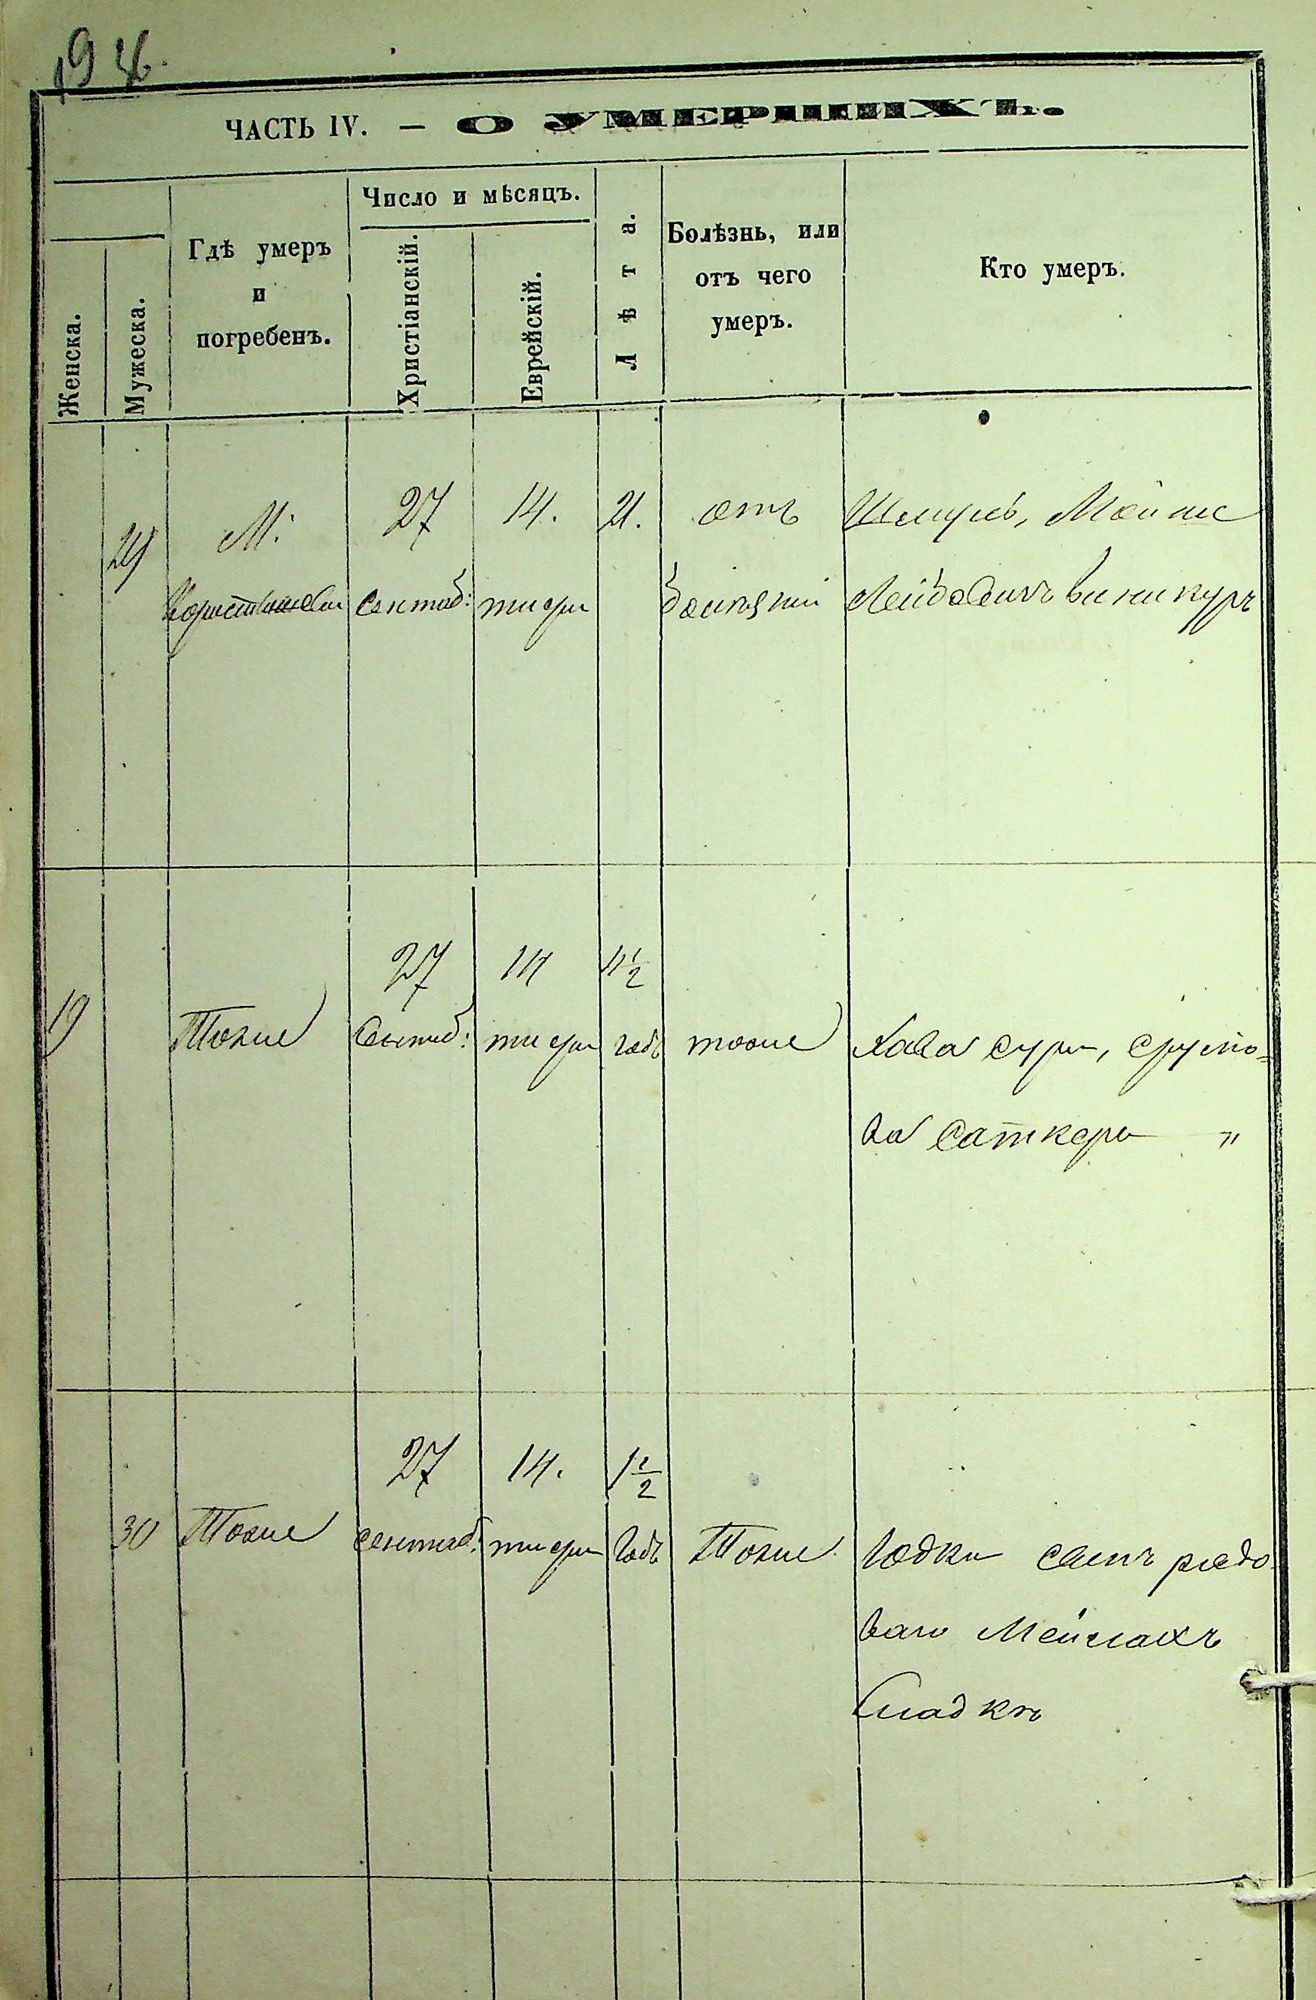 ЧАСТЬ IV. — О УМЕРШИХЪ.
Женска.
Мужеска.
Гдѣ умеръ
и
погребенъ.
Число и мѣсяцъ.
Христіанскій.
Еврейскій.
Лѣта.
Болѣзнь, или
отъ чего
умеръ.
Кто умеръ.
29
М:
27
14.
21.
отъ
Шмуль, Мойше
Коростышевъ
Сентяб:
тишри
болѣзни
Лейбовичъ Виникуръ
27
14
1 1/2
19
Тоже
Сентяб:
тишри
годъ
тоже
Хава Сура, Срулё=
ва Саткеръ "
27
14.
1 1/2
30
Тоже
Сентяб:
тишри
годъ
Тоже
сынъ рядо
ваго Мейлахъ